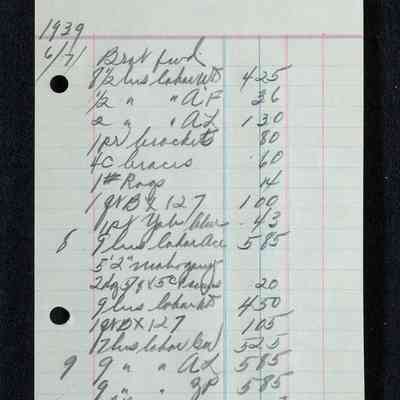 1939
6/7/ Brot fwd.
8 1/2 hrs labor Wt 425
1/2 " " A.F 36
2 " " A.L 130
1 pr brackets 80
4 C braces 60
1 # Rags 14
1 qt B X 127 100
1 pt 43
8 9 hrs labor Ace 585
5'2" mahogany
2 dz 20
9 hrs labor Wt 450
1 qt D X 127 105
17 hrs labor 525
9 9 " " A L 585
9 " " 585